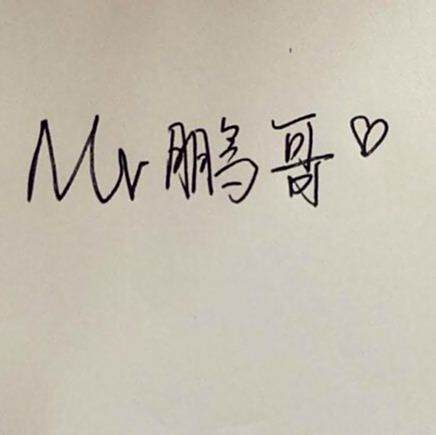 Mr鹏哥♡